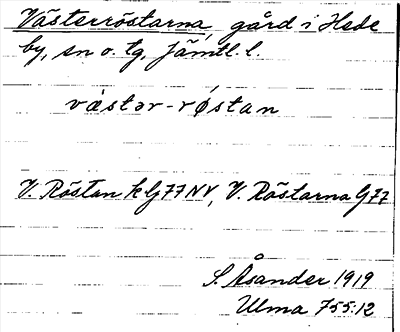 Västerröstarna, gård i Hede
by, sn o. tg, Jämtl. l.
væstər-røstan
V. Röstan k G77 NV, V. Röstarna G77
S. Åsander 1919
Ulma 755:12